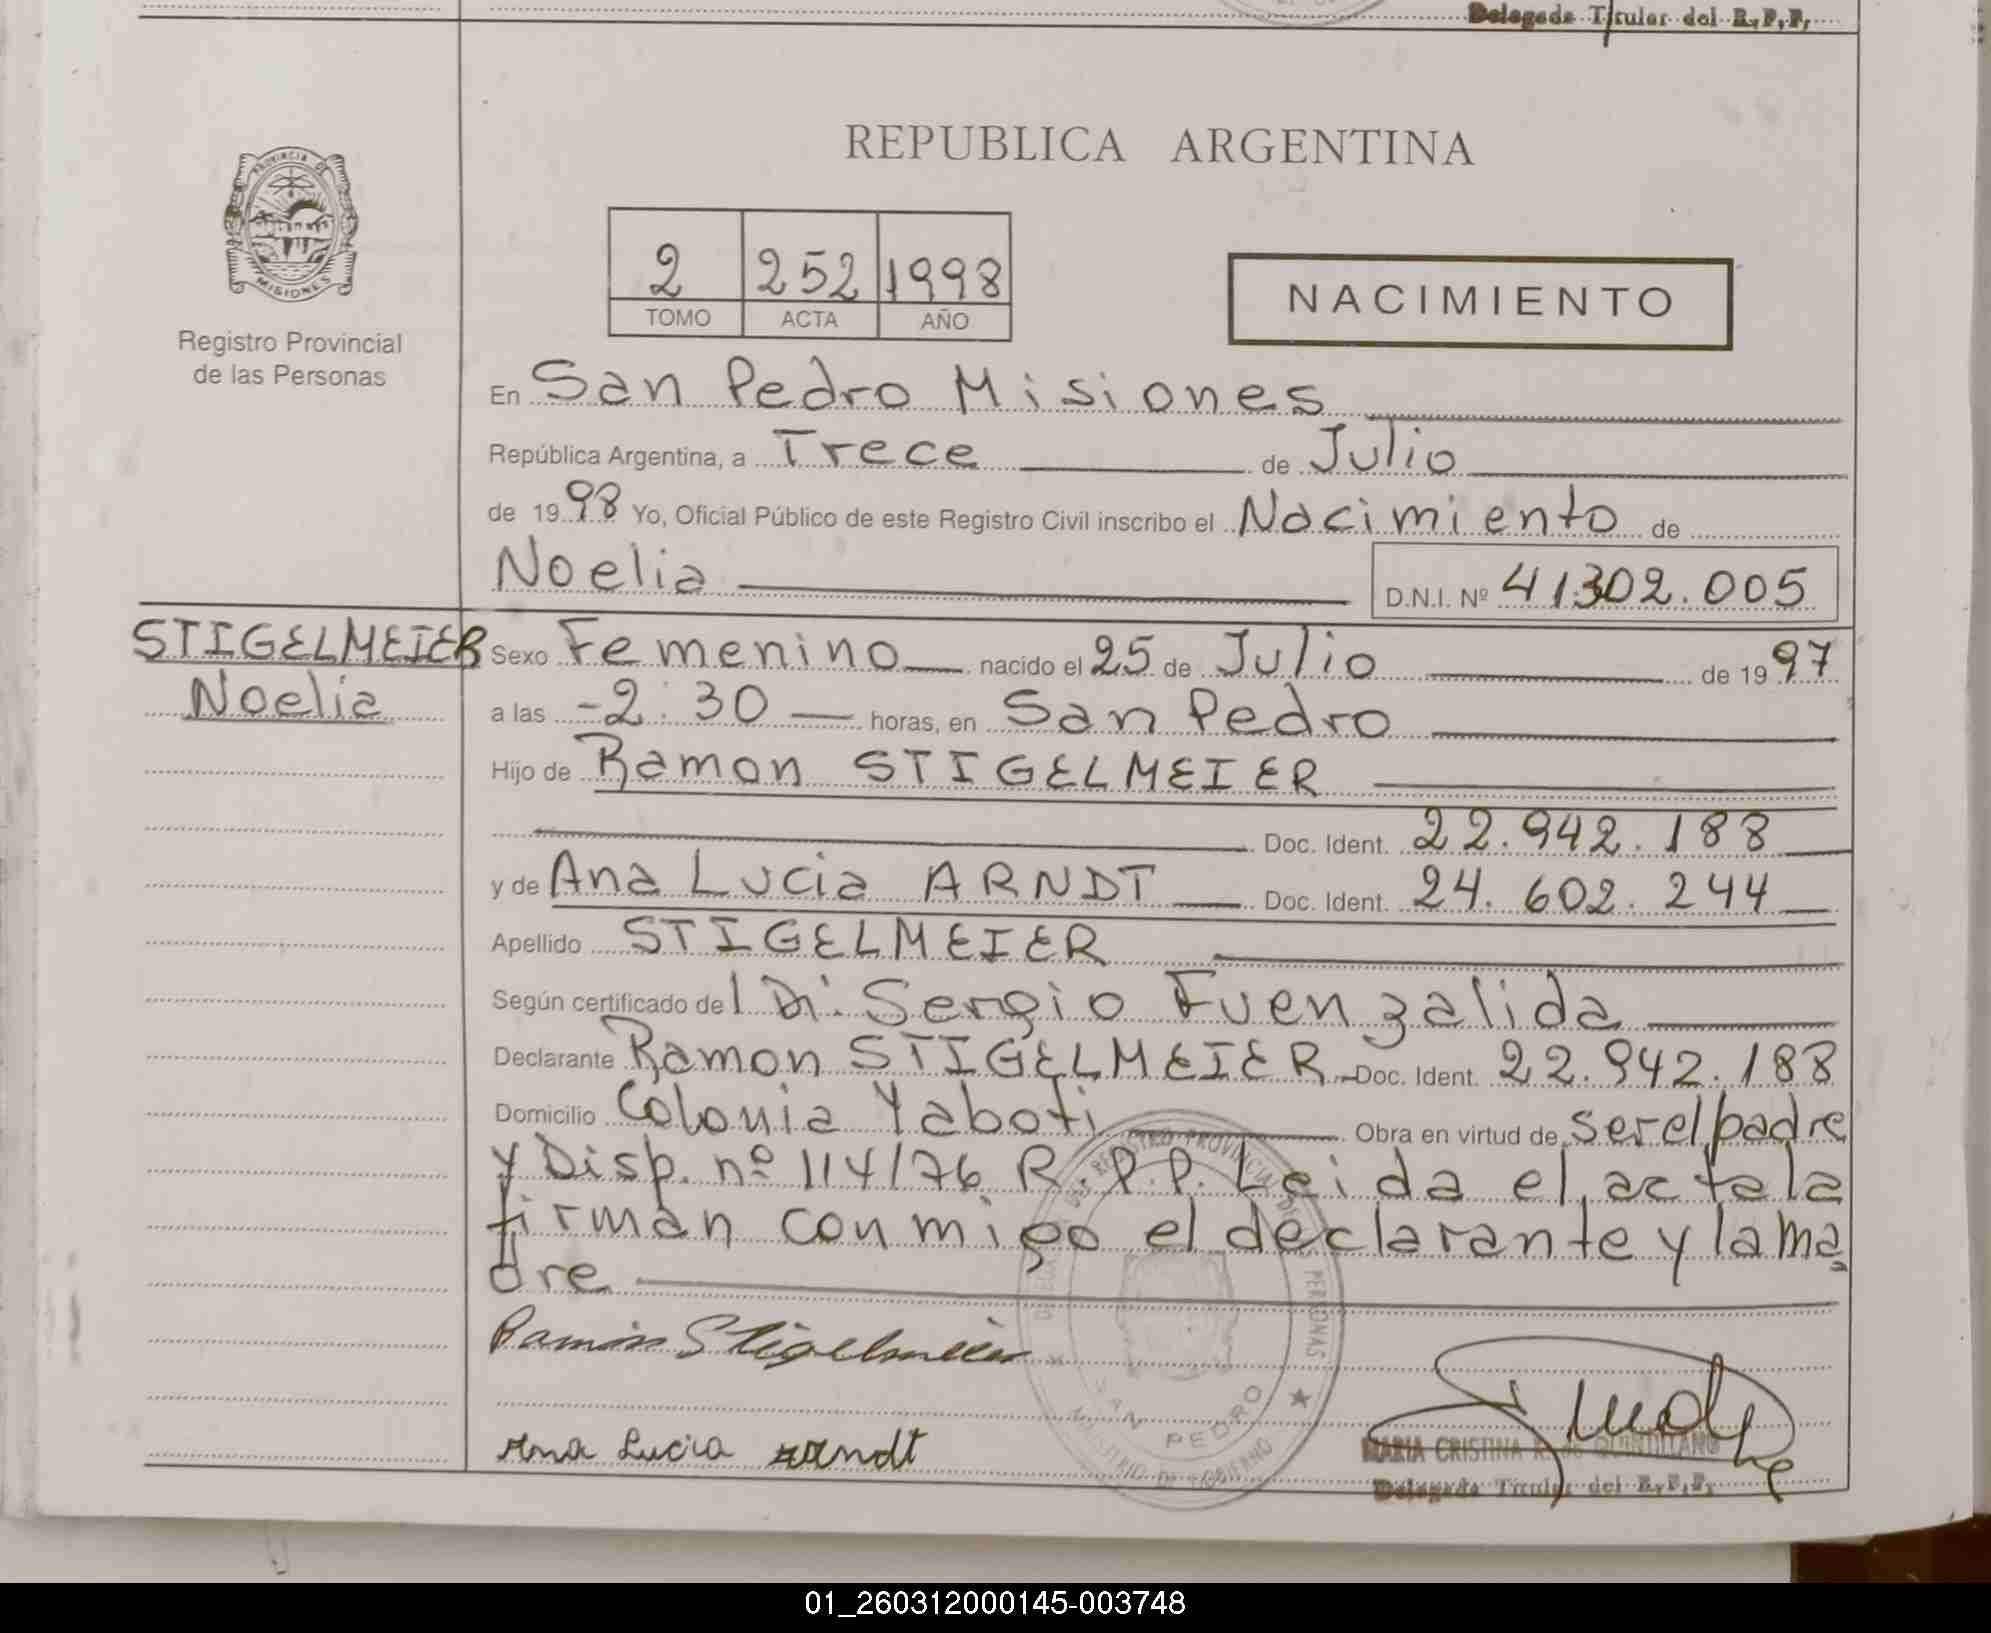 Delegada Titular del R.P.P.
PROVINCIA DE
MISIONES
Registro Provincial
de las Personas
REPUBLICA ARGENTINA
2 252 1998
TOMO ACTA AÑO
NACIMIENTO
En San Pedro Misiones
República Argentina, a Trece de Julio
de 1998 Yo, Oficial Público de este Registro Civil inscribo el Nacimiento de
Noelia D.N.I. Nº 41302.005
STIGELMEIER
Noelia
Sexo Femenino nacido el 25 de Julio de 1997
a las -2:30 horas, en San Pedro
Hijo de Ramon STIGELMEIER
Doc. Ident. 22.942.188
y de Ana Lucia ARNDT Doc. Ident. 24.602.244
Apellido STIGELMEIER
Según certificado del Dr. Sergio Fuenzalida
Declarante Ramon STIGELMEIER Doc. Ident. 22.942.188
Domicilio Colonia Yaboti Obra en virtud de ser el padre
y Disp. nº 114/76 R.P.P. Leida el acta la
firman conmigo el declarante y la ma
dre
REGISTRO PROVINCIAL DE LAS PERSONAS
SAN PEDRO
MINISTERIO DE GOBIERNO
Ramón Stigelmeier
Ana Lucia Arndt
MARIA CRISTINA R. de QUINTILLANO
Delegada Titular del R.P.P.
01_260312000145-003748